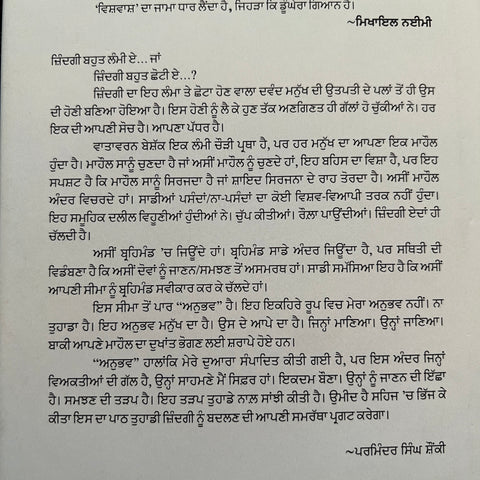 'ਵਿਸ਼ਵਾਸ਼' ਦਾ ਜਾਮਾ ਧਾਰ ਲੈਂਦਾ ਹੈ, ਜਿਹੜਾ ਕਿ ਡੂੰਘੇਰਾ ਗਿਆਨ ਹੈ।
~ਮਿਖਾਇਲ ਨਈਮੀ
ਜ਼ਿੰਦਗੀ ਬਹੁਤ ਲੰਮੀ ਏ... ਜਾਂ
ਜ਼ਿੰਦਗੀ ਬਹੁਤ ਛੋਟੀ ਏ...?
ਜ਼ਿੰਦਗੀ ਦਾ ਇਹ ਲੰਮਾ ਤੇ ਛੋਟਾ ਹੋਣ ਵਾਲਾ ਦਵੰਦ ਮਨੁੱਖ ਦੀ ਉਤਪਤੀ ਦੇ ਪਲਾਂ ਤੋਂ ਹੀ ਉਸ
ਦੀ ਹੋਣੀ ਬਣਿਆ ਹੋਇਆ ਹੈ। ਇਸ ਹੋਣੀ ਨੂੰ ਲੈ ਕੇ ਹੁਣ ਤੱਕ ਅਣਗਿਣਤ ਹੀ ਗੱਲਾਂ ਹੋ ਚੁੱਕੀਆਂ ਨੇ। ਹਰ
ਇਕ ਦੀ ਆਪਣੀ ਸੋਚ ਹੈ। ਆਪਣਾ ਪੱਧਰ ਹੈ।
ਵਾਤਾਵਰਨ ਬੇਸ਼ੱਕ ਇਕ ਲੰਮੀ ਚੌੜੀ ਪ੍ਰਥਾ ਹੈ, ਪਰ ਹਰ ਮਨੁੱਖ ਦਾ ਆਪਣਾ ਇਕ ਮਾਹੌਲ
ਹੁੰਦਾ ਹੈ। ਮਾਹੌਲ ਸਾਨੂੰ ਚੁਣਦਾ ਹੈ ਜਾਂ ਅਸੀਂ ਮਾਹੌਲ ਨੂੰ ਚੁਣਦੇ ਹਾਂ, ਇਹ ਬਹਿਸ ਦਾ ਵਿਸ਼ਾ ਹੈ, ਪਰ ਇਹ
ਸਪਸ਼ਟ ਹੈ ਕਿ ਮਾਹੌਲ ਸਾਨੂੰ ਸਿਰਜਦਾ ਹੈ ਜਾਂ ਸ਼ਾਇਦ ਸਿਰਜਨਾ ਦੇ ਰਾਹ ਤੋਰਦਾ ਹੈ। ਅਸੀਂ ਮਾਹੌਲ
ਅੰਦਰ ਵਿਚਰਦੇ ਹਾਂ। ਸਾਡੀਆਂ ਪਸੰਦਾਂ/ਨਾ-ਪਸੰਦਾਂ ਦਾ ਕੋਈ ਵਿਸ਼ਵ-ਵਿਆਪੀ ਤਰਕ ਨਹੀਂ ਹੁੰਦਾ।
ਇਹ ਸਮੂਹਿਕ ਦਲੀਲ ਵਿਹੂਣੀਆਂ ਹੁੰਦੀਆਂ ਨੇ। ਚੁੱਪ ਕੀਤੀਆਂ। ਰੌਲ਼ਾ ਪਾਉਂਦੀਆਂ। ਜ਼ਿੰਦਗੀ ਏਦਾਂ ਹੀ
ਚੱਲਦੀ ਹੈ।
ਅਸੀਂ ਬ੍ਰਹਿਮੰਡ 'ਚ ਜਿਉਂਦੇ ਹਾਂ। ਬ੍ਰਹਿਮੰਡ ਸਾਡੇ ਅੰਦਰ ਜਿਊਂਦਾ ਹੈ, ਪਰ ਸਥਿਤੀ ਦੀ
ਵਿਡੰਬਣਾ ਹੈ ਕਿ ਅਸੀਂ ਦੋਵਾਂ ਨੂੰ ਜਾਣਨ/ਸਮਝਣ ਤੋਂ ਅਸਮਰਥ ਹਾਂ। ਸਾਡੀ ਸਮੱਸਿਆ ਇਹ ਹੈ ਕਿ ਅਸੀਂ
ਆਪਣੀ ਸੀਮਾ ਨੂੰ ਬ੍ਰਹਿਮੰਡ ਸਵੀਕਾਰ ਕਰ ਕੇ ਚੱਲਦੇ ਹਾਂ।
ਇਸ ਸੀਮਾ ਤੋਂ ਪਾਰ "ਅਨੁਭਵ" ਹੈ। ਇਹ ਇਕਹਿਰੇ ਰੂਪ ਵਿਚ ਮੇਰਾ ਅਨੁਭਵ ਨਹੀਂ। ਨਾ
ਤੁਹਾਡਾ ਹੈ। ਇਹ ਅਨੁਭਵ ਮਨੁੱਖ ਦਾ ਹੈ। ਉਸ ਦੇ ਆਪੇ ਦਾ ਹੈ। ਜਿਨ੍ਹਾਂ ਮਾਣਿਆ। ਉਨ੍ਹਾਂ ਜਾਣਿਆ।
ਬਾਕੀ ਆਪਣੇ ਮਾਹੌਲ ਦਾ ਦੁਖਾਂਤ ਭੋਗਣ ਲਈ ਸ਼ਰਾਪੇ ਹੋਏ ਹਨ।
"ਅਨੁਭਵ" ਹਾਲਾਂਕਿ ਮੇਰੇ ਦੁਆਰਾ ਸੰਪਾਦਿਤ ਕੀਤੀ ਗਈ ਹੈ, ਪਰ ਇਸ ਅੰਦਰ ਜਿਨ੍ਹਾਂ
ਵਿਅਕਤੀਆਂ ਦੀ ਗੱਲ ਹੈ, ਉਨ੍ਹਾਂ ਸਾਹਮਣੇ ਮੈਂ ਸਿਫ਼ਰ ਹਾਂ। ਇਕਦਮ ਬੌਣਾ। ਉਨ੍ਹਾਂ ਨੂੰ ਜਾਣਨ ਦੀ ਇੱਛਾ
ਹੈ। ਸਮਝਣ ਦੀ ਤੜਪ ਹੈ। ਇਹ ਤੜਪ ਤੁਹਾਡੇ ਨਾਲ਼ ਸਾਂਝੀ ਕੀਤੀ ਹੈ। ਉਮੀਦ ਹੈ ਸਹਿਜ 'ਚ ਭਿੱਜ ਕੇ
ਕੀਤਾ ਇਸ ਦਾ ਪਾਠ ਤੁਹਾਡੀ ਜ਼ਿੰਦਗੀ ਨੂੰ ਬਦਲਣ ਦੀ ਆਪਣੀ ਸਮਰੱਥਾ ਪ੍ਰਗਟ ਕਰੇਗਾ।
~ਪਰਮਿੰਦਰ ਸਿੰਘ ਸ਼ੌਂਕੀ